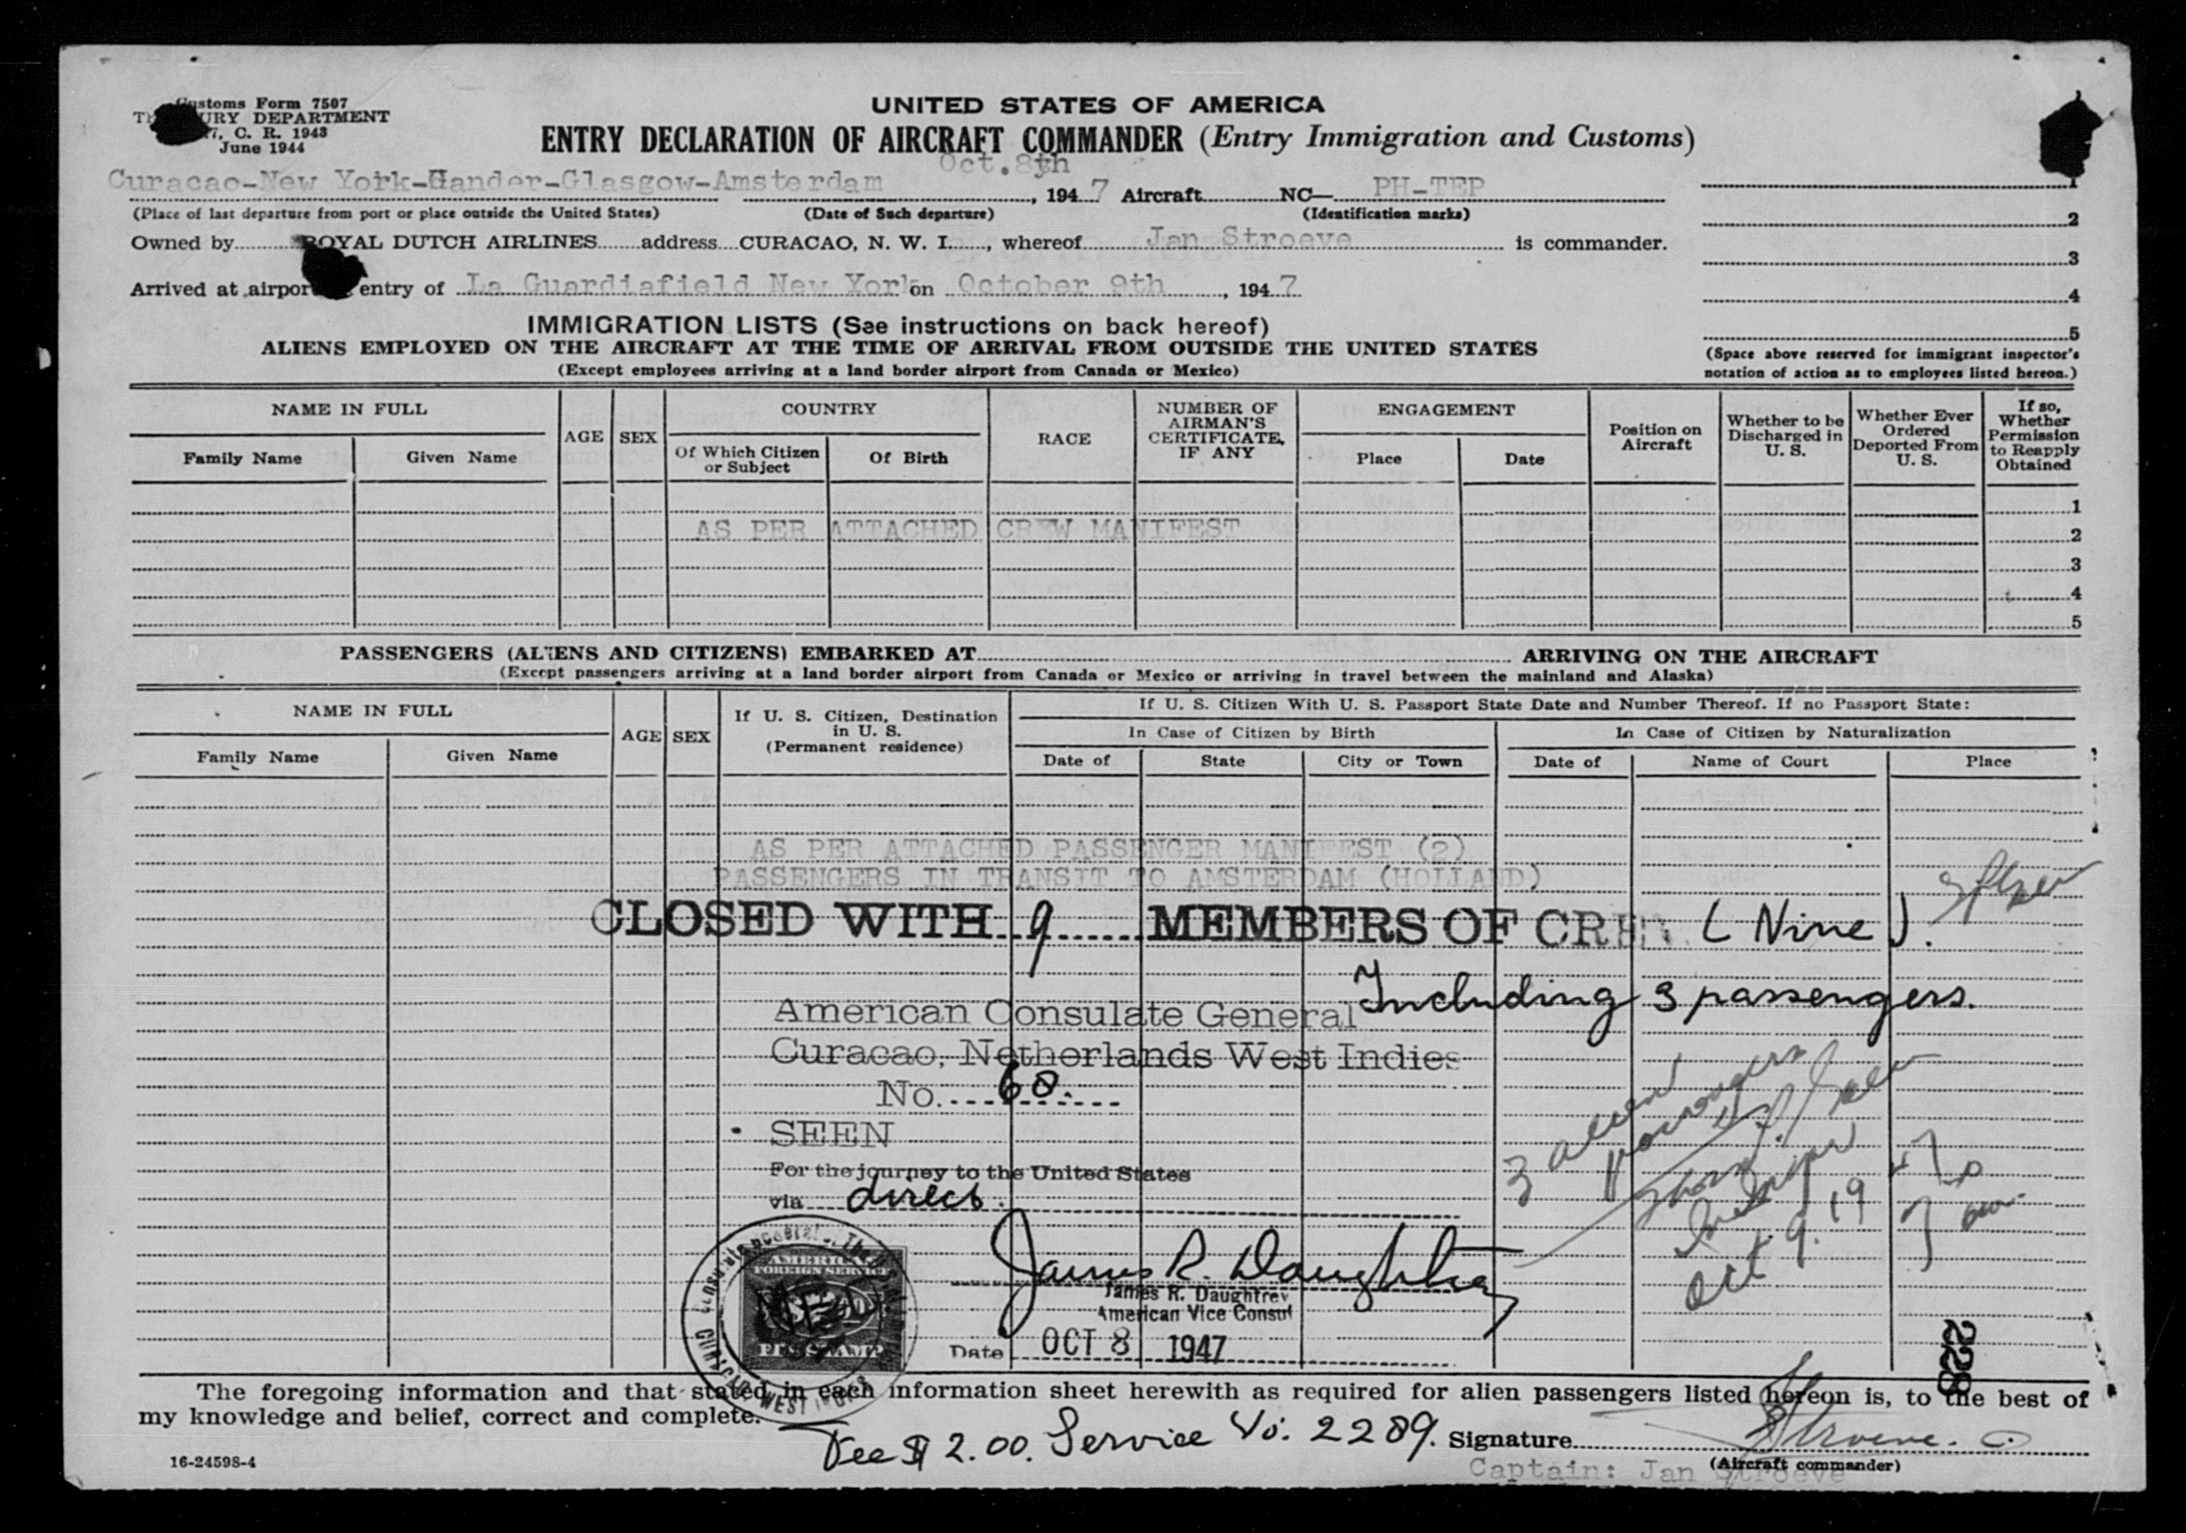 Customs Form 7507
UNITED STATES OF AMERICA
DEPARTMENT
C. R. 1943
June 1944
ENTRY DECLARATION OF AIRCRAFT COMMANDER (Entry Immigration and Customs)
Curacao-New York-Gander-Glasgow-Amsterdam Oct. 8th, 1947 Aircraft NC— PH-TEP
(Place of last departure from port or place outside the United States) (Date of Such departure) (Identification marks)
1
2
3
4
5
Owned by ROYAL DUTCH AIRLINES address CURACAO, N. W. I., whereof Jan Stroeve is commander.
Arrived at airport entry of La Guardiafield New York on October 9th, 1947
IMMIGRATION LISTS (See instructions on back hereof)
ALIENS EMPLOYED ON THE AIRCRAFT AT THE TIME OF ARRIVAL FROM OUTSIDE THE UNITED STATES
(Except employees arriving at a land border airport from Canada or Mexico)
(Space above reserved for immigrant inspector's
notation of action as to employees listed hereon.)
NAME IN FULL
Family Name
Given Name
AGE
SEX
COUNTRY
Of Which Citizen or Subject
Of Birth
RACE
NUMBER OF AIRMAN'S CERTIFICATE, IF ANY
ENGAGEMENT
Place
Date
Position on Aircraft
Whether to be Discharged in U. S.
Whether Ever Ordered Deported From U. S.
If so, Whether Permission to Reapply Obtained
1
AS PER ATTACHED CREW MANIFEST
2
3
4
5
PASSENGERS (ALIENS AND CITIZENS) EMBARKED AT ARRIVING ON THE AIRCRAFT
(Except passengers arriving at a land border airport from Canada or Mexico or arriving in travel between the mainland and Alaska)
NAME IN FULL
Family Name
Given Name
AGE
SEX
If U. S. Citizen, Destination in U. S.
(Permanent residence)
If U. S. Citizen With U. S. Passport State Date and Number Thereof. If no Passport State:
In Case of Citizen by Birth
In Case of Citizen by Naturalization
Date of
State
City or Town
Date of
Name of Court
Place
AS PER ATTACHED PASSENGER MANIFEST (2)
PASSENGERS IN TRANSIT TO AMSTERDAM (HOLLAND)
CLOSED WITH 9 MEMBERS OF CREW (Nine).
Including 3 passengers.
American Consulate General
Curacao, Netherlands West Indies
No. 68.
SEEN
For the journey to the United States
via direct.
3 alien passengers
Oct 9. 1947
James R. Daughtrey
James R. Daughtrey
American Vice Consul
Date OCT 8 1947
AMERICAN FOREIGN SERVICE
FEE STAMP
CURACAO WEST INDIES
228
The foregoing information and that stated in each information sheet herewith as required for alien passengers listed hereon is, to the best of
my knowledge and belief, correct and complete.
Fee $ 2.00. Service No. 2289. Signature Stroeve.
16-24598-4
(Aircraft commander)
Captain: Jan Stroeve